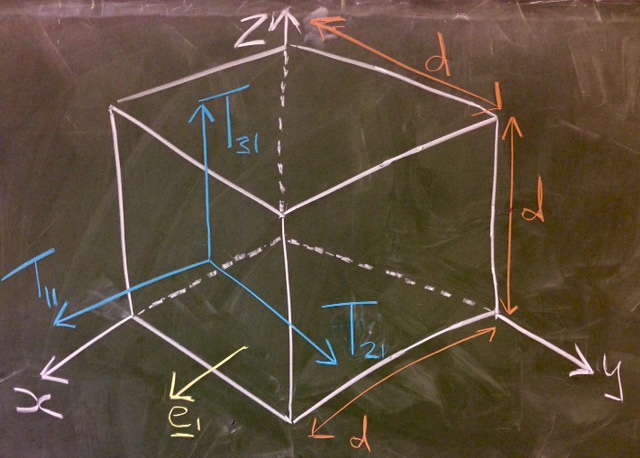 z
d
T31
d
T11
T21
x
y
e1
d